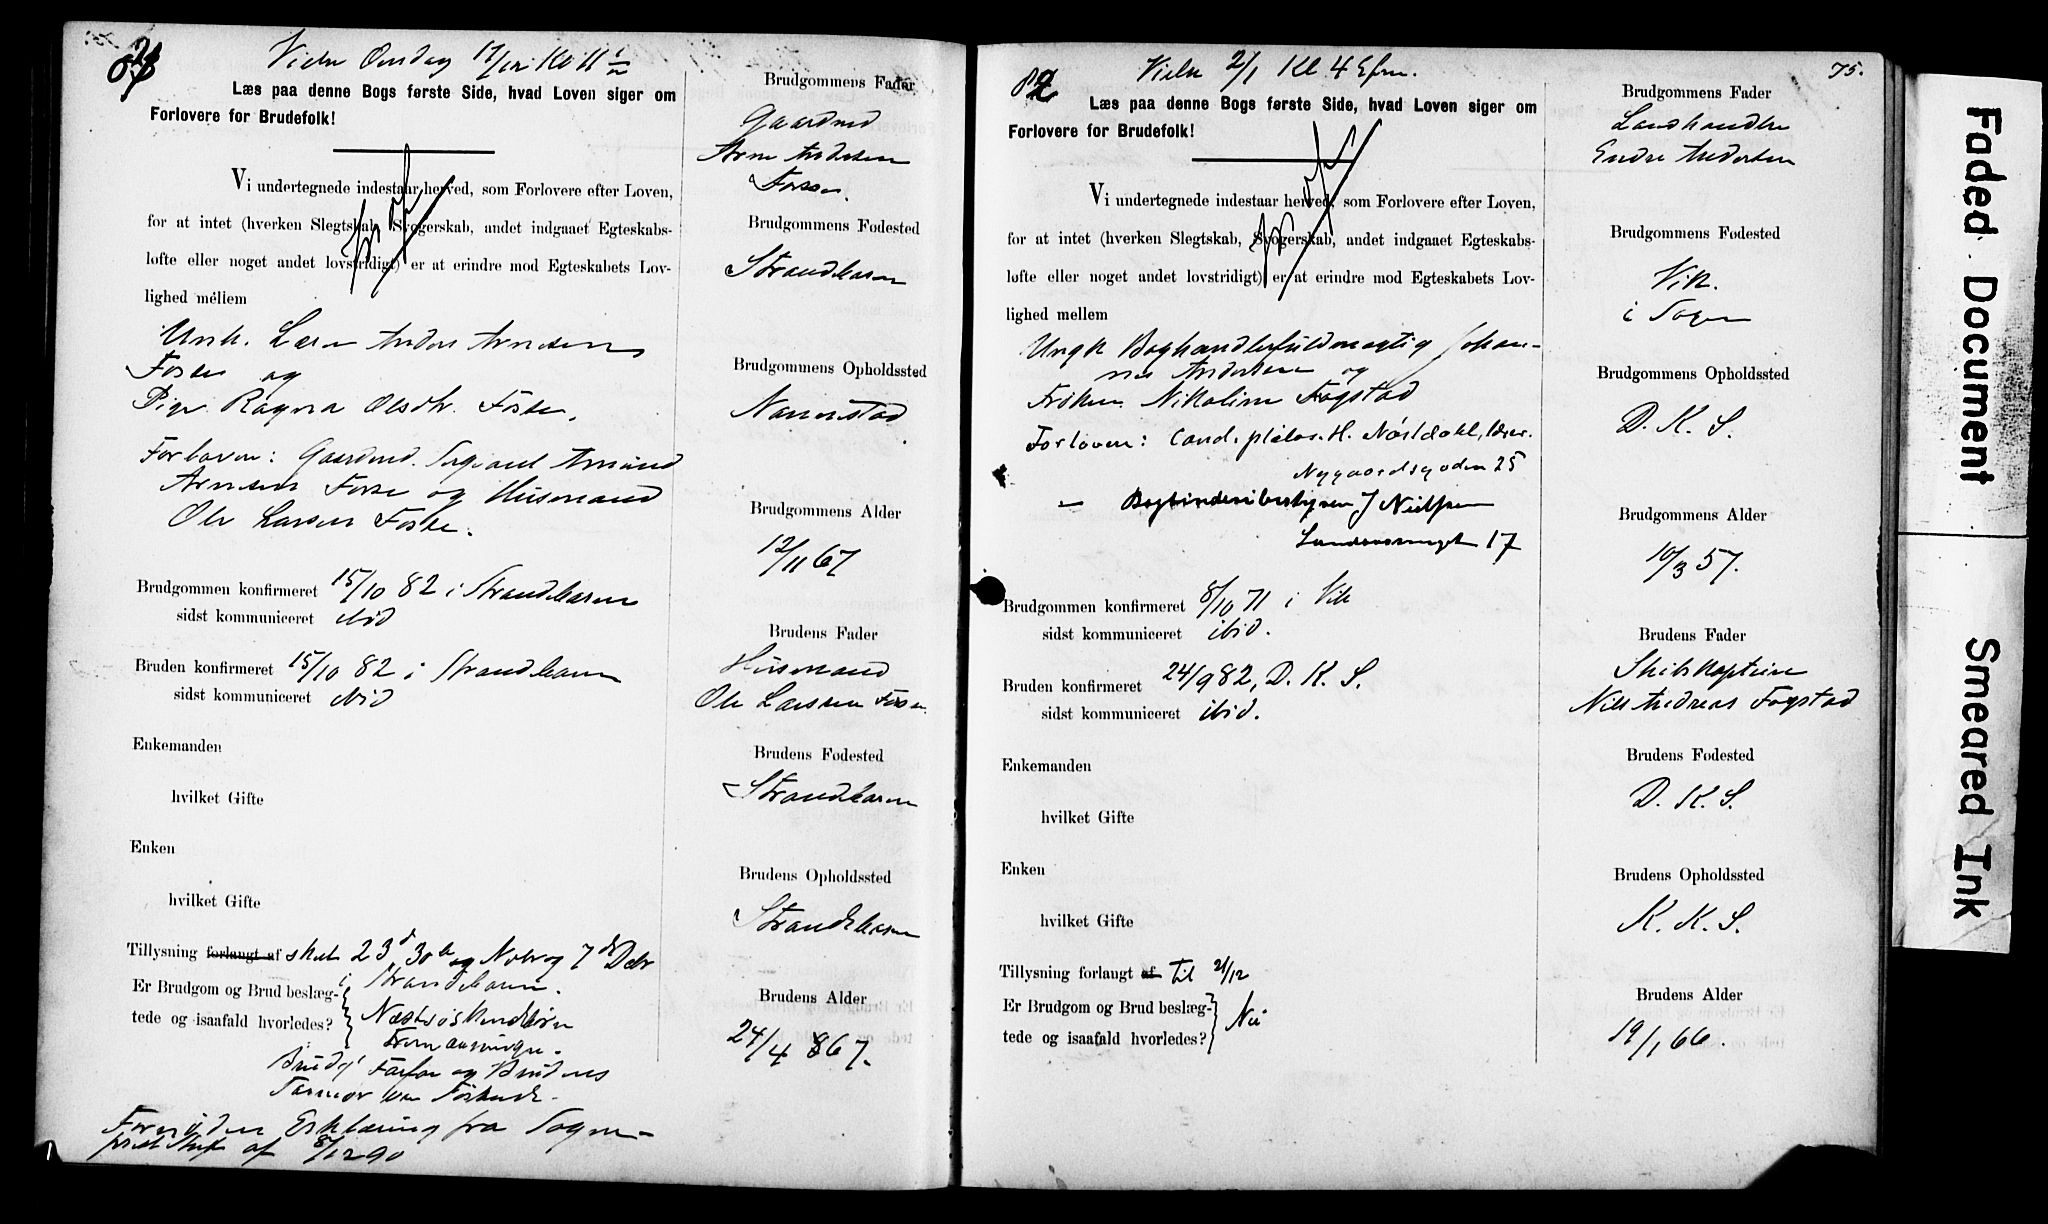 Vielse Onsdag 17/12 Kl 11 1/2
Læs paa denne Bogs første Side, hvad Loven siger om
Forlovere for Brudefolk!
Vi undertegnede indestaar herved, som Forlovere efter Loven,
for at intet (hverken Slegtskab, Svogerskab, andet indgaaet Egteskabs-
løfte eller noget andet lovstridigt) er at erindre mod Egteskabets Lov-
lighed mellem
Unk. Lærer Anders Arnesen
og
Pige Ragna Olsdtr. Fosse.
Forlovere: Gaardmd. Sergeant Amund
Arnesen Fosse og Husmand
Ole Larsen Fosse.
Brudgommen konfirmeret 15/10 82 i Strandebarm
sidst kommuniceret ibid
Bruden konfirmeret 15/10 82 i Strandebarm
sidst kommuniceret ibid
Enkemanden
hvilket Gifte
Enken
hvilket Gifte
Tillysning forlangt af skeet 23d 30te og 7de Debr
i Strandebarm.
Er Brudgom og Brud beslæg-
tede og isaafald hvorledes?
Næstsøskendebørn
Farfar og Brudens
Farmor var Søskende.
Fornøden Erklæring fra Sogne-
prest af 8/12 90
Brudgommens Fader
Gaardmd
Arne Andersen
Fosse.
Brudgommens Fødested
Strandebarm
Brudgommens Opholdssted
Nannestad
Brudgommens Alder
12/11 67
Brudens Fader
Husmand
Ole Larsen Fosse.
Brudens Fødested
Strandebarm
Brudens Opholdssted
Strandebarm
Brudens Alder
24/4 67.
82
Vielse 2/1 Kl 4 Efm.
75.
Læs paa denne Bogs første Side, hvad Loven siger om
Forlovere for Brudefolk!
Vi undertegnede indestaar herved, som Forlovere efter Loven,
for at intet (hverken Slegtskab, Svogerskab, andet indgaaet Egteskabs-
løfte eller noget andet lovstridigt) er at erindre mod Egteskabets Lov-
lighed mellem
Ungk Boghandlerfuldmægtig Johan-
nes Andersen og
Frøken Nikoline Fogstad
Forlovere: Cand. philos. H. Nordahl, lærer.
Nygaardsgaden 25
— Bogbinderibestyrer J Nielsen
17
Brudgommen konfirmeret 8/10 71 i Vik
sidst kommuniceret ibid.
Bruden konfirmeret 24/9 82, D. K. S.
sidst kommuniceret ibid.
Enkemanden
hvilket Gifte
Enken
hvilket Gifte
Tillysning forlangt af til 21/12
Er Brudgom og Brud beslæg-
tede og isaafald hvorledes?
Nei
Brudgommens Fader
Landhandler
Endre Andersen
Brudgommens Fødested
Vik.
i Sogn
Brudgommens Opholdssted
D. K. S.
Brudgommens Alder
10/3 57.
Brudens Fader
Skibskaptein
Nils Andreas Fogstad
Brudens Fødested
D. K. S.
Brudens Opholdssted
K. K. S.
Brudens Alder
19/1 66.
Faded Document
Smeared Ink